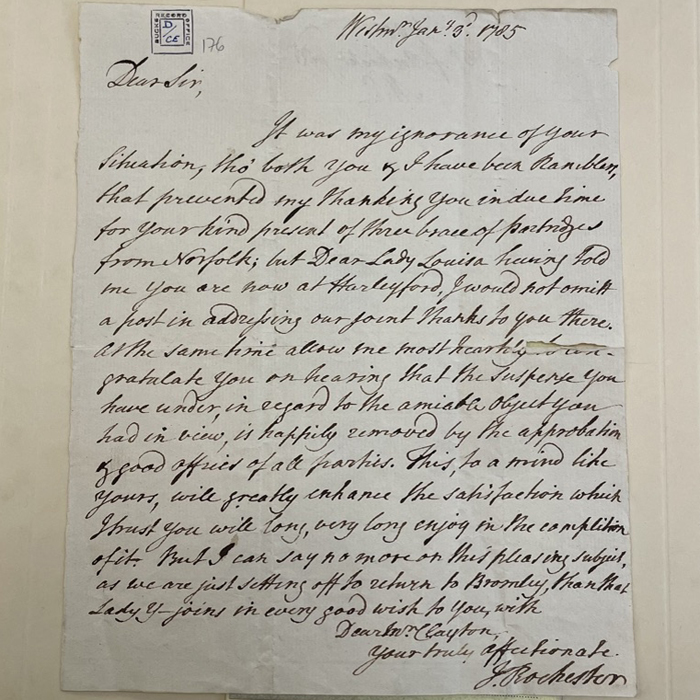 BUCKS RECORD OFFICE
D/
CE
176
Westmr. Jany. 3d. 1785
Dear Sir,
It was my ignorance of your
Situation, tho' both you & I have been Ramblers,
that prevented my thanking you in due time
for your kind present of three brace of partridges
from Norfolk; but Dear Lady Louisa having told
me you are now at Harleyford, I would not omitt
a post in addressing our joint thanks to you there.
At the same time allow me most heartily to con-
gratulate you on hearing that the suspense you
have under, in regard to the amiable object you
had in view, is happily removed by the approbation
& good offices of all parties. This, to a mind like
yours, will greatly enhance the satisfaction which
I trust you will long, very long enjoy in the complition
of it. But I can say no more on this pleasing subject,
as we are just setting off to return to Bromley, than that
Lady Y- joins in every good wish to you, with
Dear Mr. Clayton,
Your truly affectionate.
J. Rochester